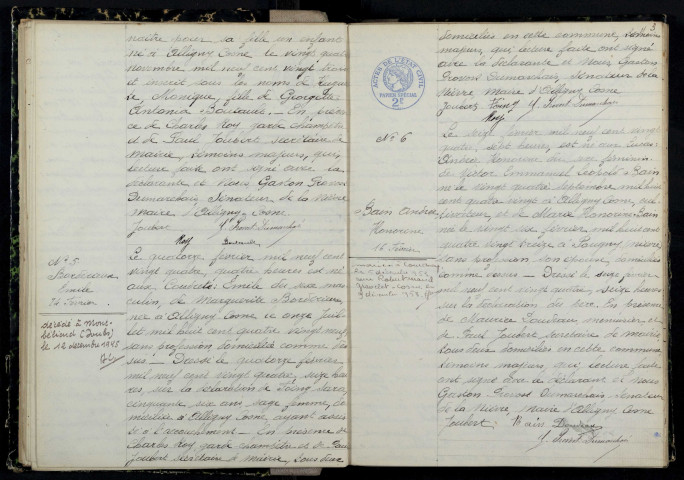 naître pour sa fille un enfant
né à Alligny Cosne le vingt quatre
novembre mil neuf cent vingt trois
et inscrit sous les noms de
Monique, fille de Georgette
Antonia Bordeaux. - En présen-
ce de Charles Roy garde champêtre
et de Paul Joubert secrétaire de
mairie, témoins majeurs, qui,
lecture faite ont signé avec la
déclarante et Nous Gaston Provost
Dumarchais Sénateur de la Nièvre
Maire d'Alligny Cosne
Joubert
Roy
N° 5
Bordeaux
Emile
14 Février
décédé à Mont-
béliard (Doubs)
le 12 décembre 1985
Le quatorze février mil neuf cent
vingt quatre, quatre heures est né
aux Émile du sexe mas-
culin, de Marguerite Bordeaux,
née à Alligny Cosne le onze Juil-
let mil huit cent quatre vingt neuf
sans profession domiciliée comme des-
sus - Dressé le quatorze février
mil neuf cent vingt quatre, seize heu-
res, sur la déclaration de
cinquante six ans, sage femme, do-
miciliée à Alligny Cosne, ayant assis-
té à l'accouchement - En présence de
Charles Roy garde champêtre et de Paul
Joubert secrétaire de mairie, tous deux
3
domiciliés en cette commune, témoins
majeurs, qui, lecture faite ont signé
avec la déclarante et Nous Gaston
Provost Dumarchais, Sénateur de la
Nièvre, maire d'Alligny Cosne
Joubert
Roy
ACTES DE L'ÉTAT CIVIL
PAPIER SPÉCIAL
2F
N° 6
Andrée
Honorine
16 Février
Le seize février mil neuf cent vingt
quatre, sept heures, est née aux
Andrée Honorine du sexe féminin
de Victor Emmanuel Léopold
né le vingt quatre septembre mil huit
cent quatre vingt à Alligny Cosne, cul-
tivateur et de Marie Honorine
née le vingt six février mil huit cent
quatre vingt treize à Pougny Nièvre
sans profession son épouse, domiciliés
comme dessus - Dressé le seize février
mil neuf cent vingt quatre, seize heures
sur la déclaration du père. En présence
de Maurice menuisier et
de Paul Joubert secrétaire de mairie,
tous deux domiciliés en cette commune
témoins majeurs, qui, lecture faite
ont signé avec le déclarant et nous
Gaston Provost Dumarchais Sénateur
de la Nièvre, Maire d'Alligny Cosne
Joubert